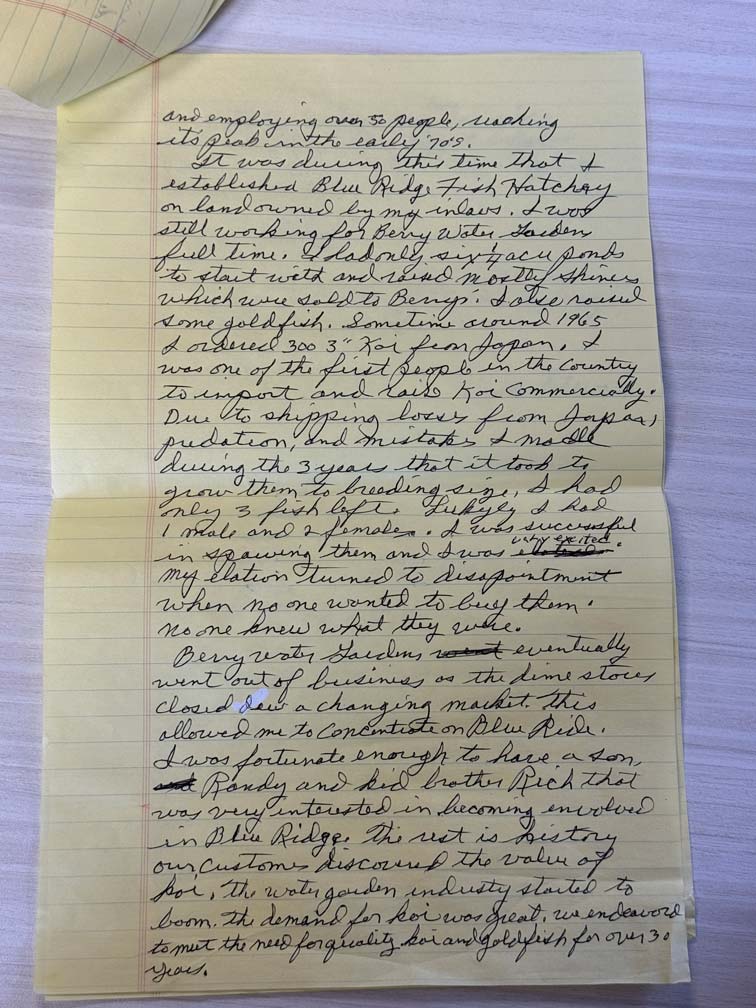 and employing over 50 people, reaching
its peak in the early 70's.
It was during this time that I
established Blue Ridge Fish Hatchey
on land owned by my inlaws. I was
still working for Berry Water Garden
full time. I had only six ¼ acre ponds
to start with and raised mostly shiners
which were sold to Berrys. I also raised
some goldfish. Sometime around 1965
I ordered 300 3" Koi from Japan. I
was one of the first people in the country
to import and raise Koi commercially.
Due to shipping losses from Japan,
predation, and mistakes I made
during the 3 years that it took to
grow them to breeding size, I had
only 3 fish left. Lukyly I had
1 male and 2 females. I was successful
in spawing them and I was very excited.
my elation turned to disapointment
when no one wanted to buy them.
no one knew what they were.
Berry water Gardens eventually
went out of business as the dime stores
closed dew a changing market. This
allowed me to concentrate on Blue Ride.
I was fortunate enough to have a son,
Randy and kid brother Rich that
was very interested in becoming envolved
in Blue Ridge. The rest is history
our customes discovered the value of
koi, the water garden industy started to
boom. the demand for koi was great, we endeavord
to meet the need for quality koi and goldfish for over 30
years.